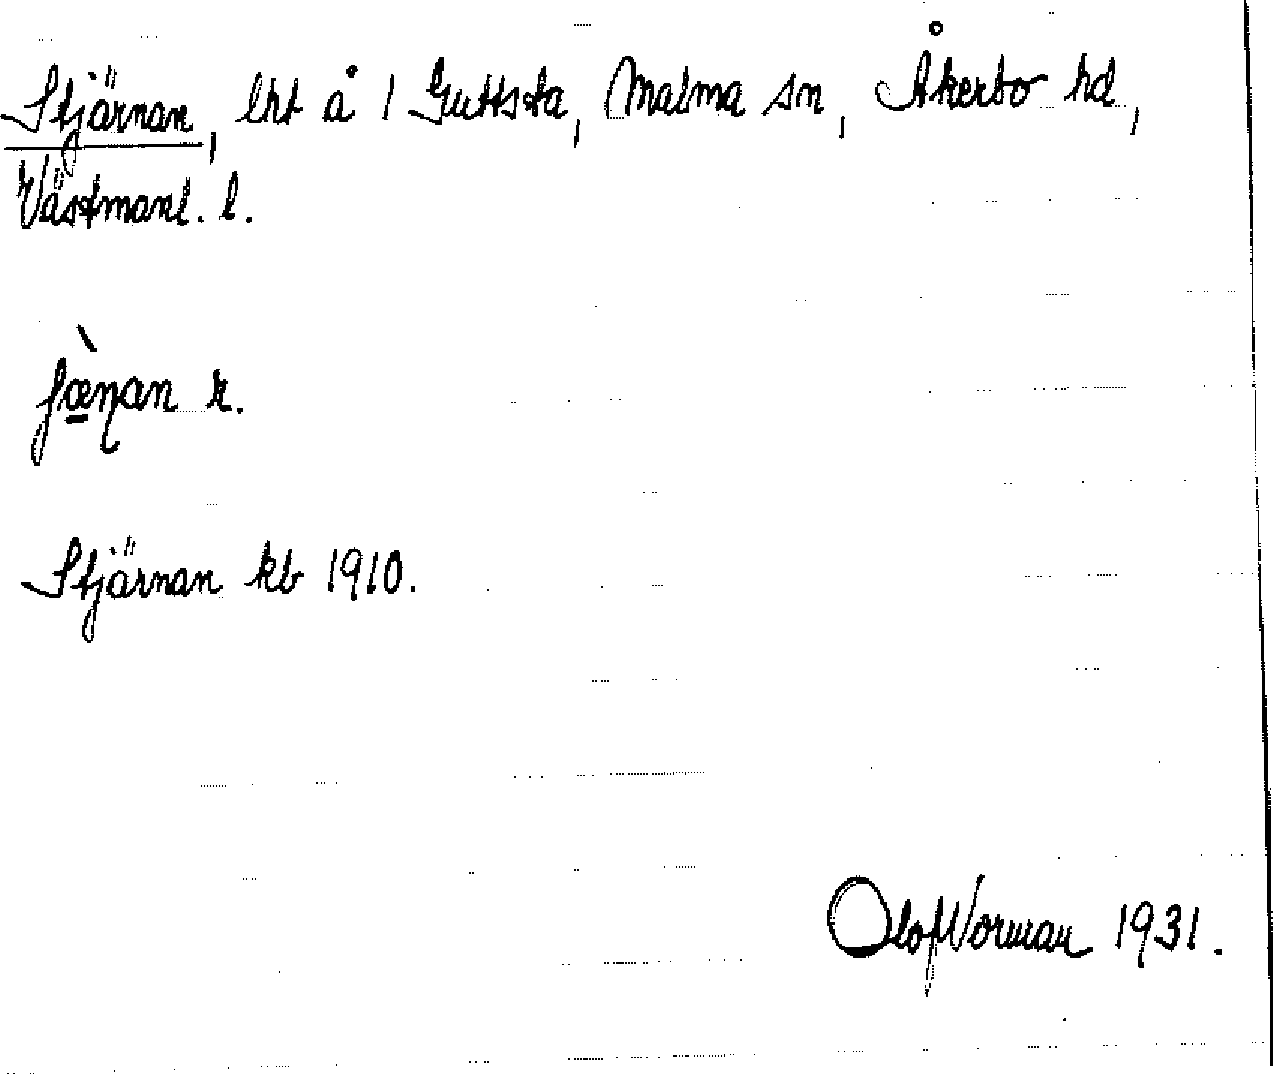 Stjärnan, lht å 1 Guttsta, Malma sn, Åkerbo hd,
Västmanl. l.
ʃæ̀ṇan r.
Stjärnan kb 1910.
Olof Norman 1931.